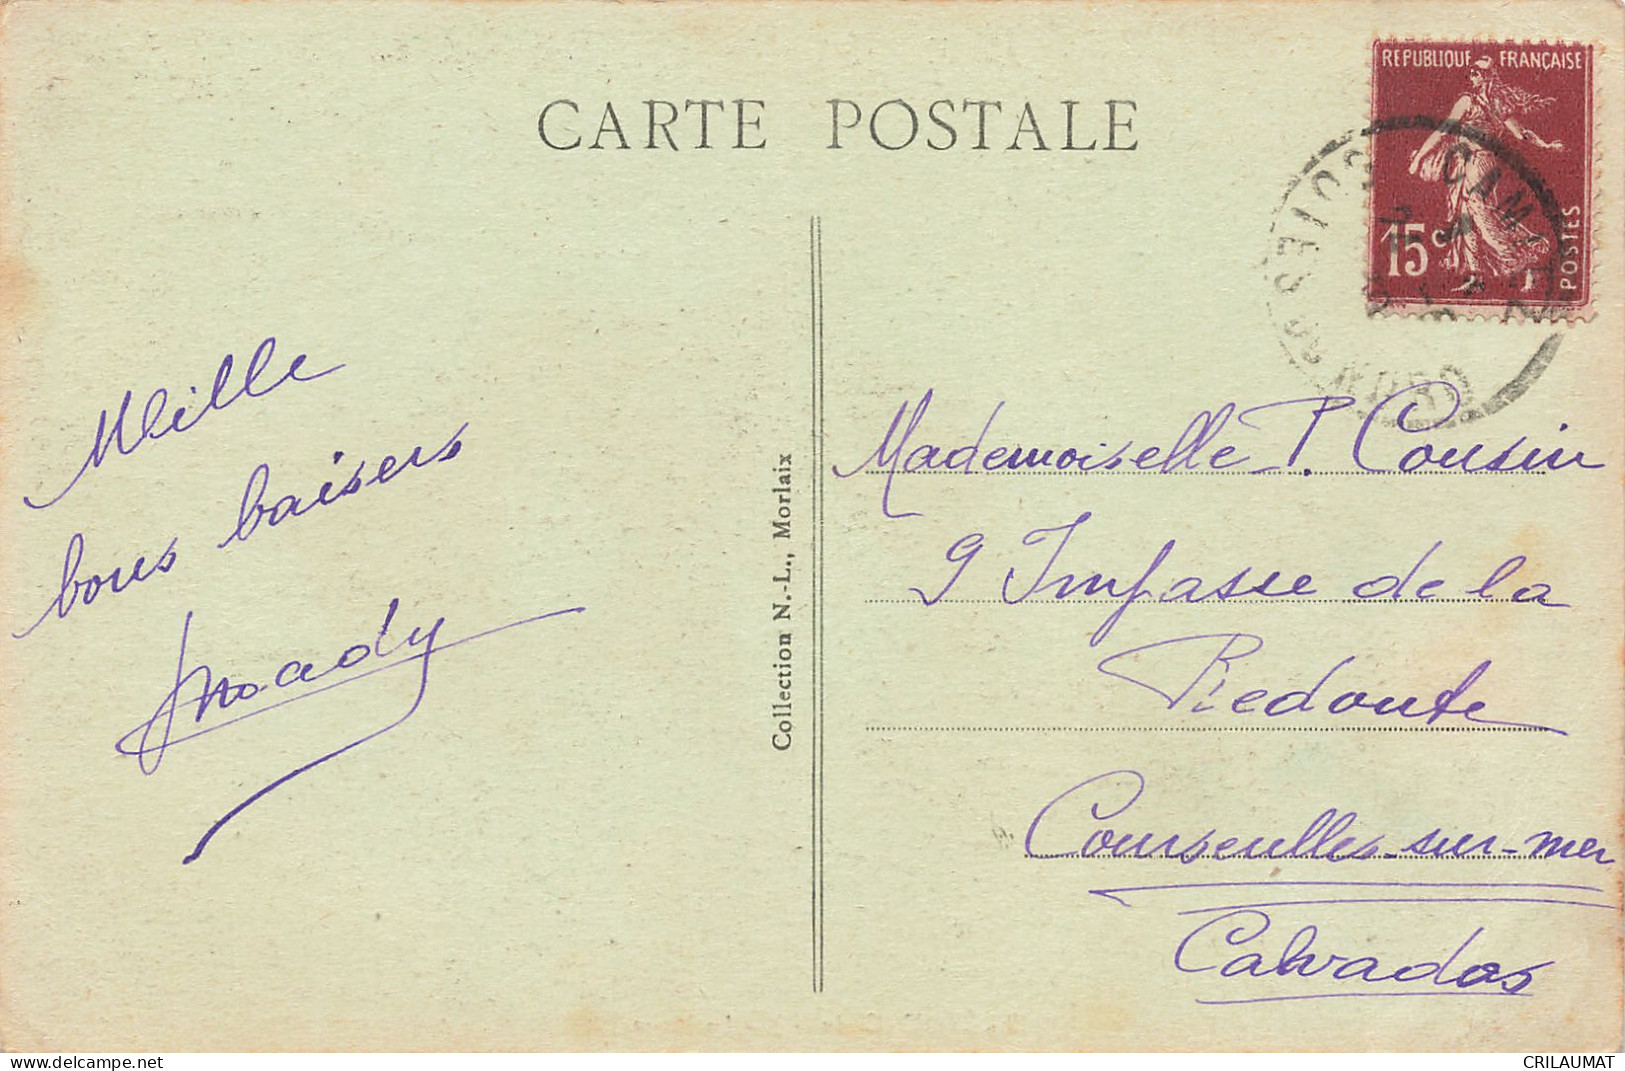 CARTE POSTALE
RÉPUBLIQUE FRANÇAISE
15c
POSTES
Mille
bons baisers
Mady
Collection N.-L., Morlaix
Mademoiselle P. Cousin
9 Impasse de la
Redoute
Courseulles-sur-mer
Calvados
www.delcampe.net
CRILAUMAT